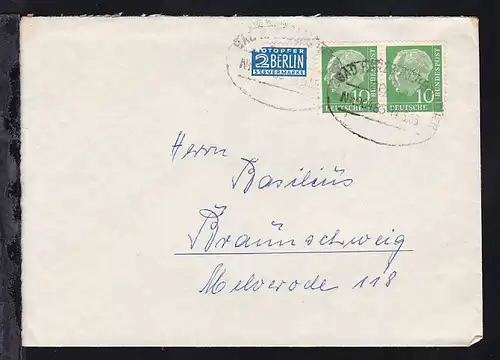 NOTOPFER
2 BERLIN
STEUERMARKE
10 DEUTSCHE BUNDESPOST
DEUTSCHE 10 BUNDESPOST
Herrn
Basilius
Braunschweig
Melverode 118